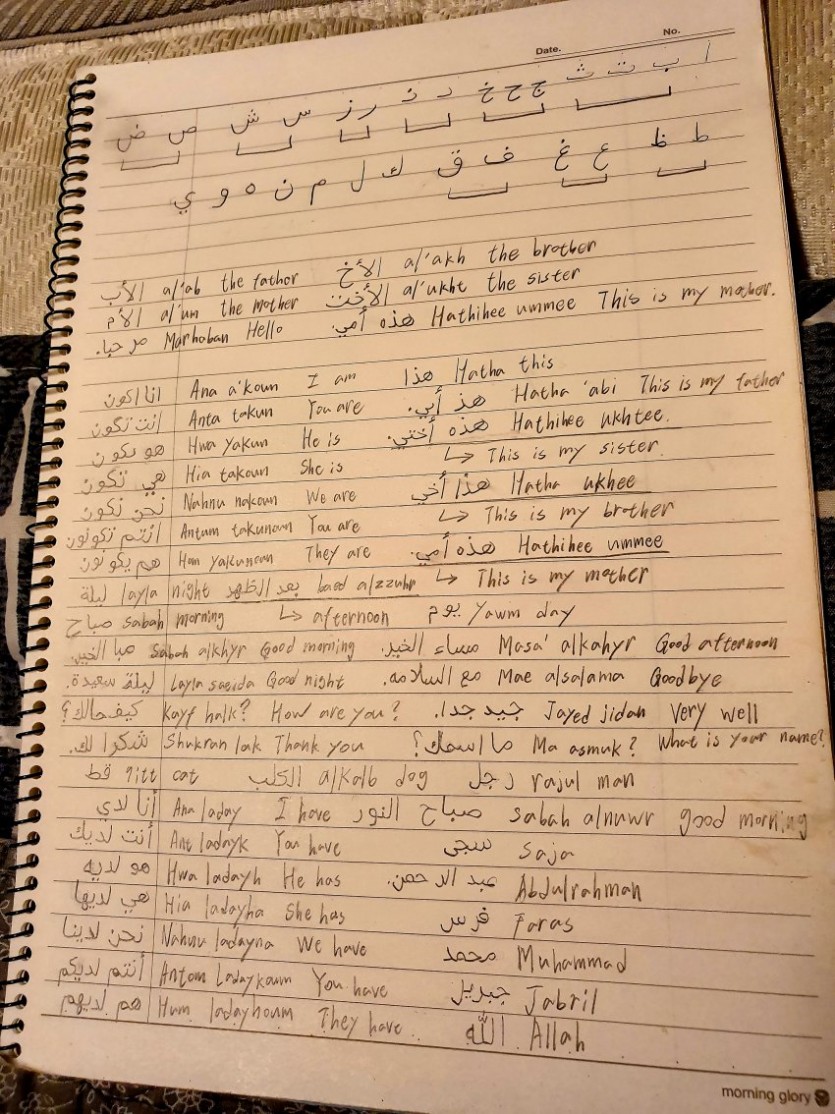 Date. No.
ا ب ت ث ج ح خ د ذ ر ز س ش ص ض
ط ظ ع غ ف ق ك ل م ن ه و ي
الأب al'ab the father الأخ al'akh the brother
الأم al'um the mother الأخت al'ukht the sister
مرحبا. Marhaban Hello هذه أمي. Hathihee ummee This is my mother.
انا اكون Ana a'koun I am هذا Hatha this
انت تكون Anta takun You are هذ أبي. Hatha 'abi This is my father
هو يكون Hwa yakun He is هذه أختي. Hathihee ukhtee.
هي تكون Hia takoun She is ↳ This is my sister.
نحن نكون Nahnu nakoun We are هذا أخي Hatha ukhee
انتم تكونون Antum takunoun You are ↳ This is my brother
هم يكونون Hom yakunoun They are هذه أمي. Hathihee ummee
ليلة layla night بعد الظهر baed alzzuhr ↳ This is my mother
صباح sabah morning ↳ afternoon يوم yawm day
صبا الخير. sabah alkhyr Good morning مساء الخير. Masa' alkahyr Good afternoon
ليلة سعيدة. Layla saeida Good night مع السلامه. Mae alsalama Goodbye
كيف حالك؟ Kayf halk? How are you? جيد جدا. Jayed jidan Very well
شكرا لك. Shukran lak Thank you ما اسمك؟ Ma asmuk? What is your name?
قط qitt cat الكلب alkalb dog رجل rajul man
أنا لدي Ana laday I have صباح النور sabah alnuwr good morning
أنت لديك Ant ladayk You have سجى Saja
هو لديه Hwa ladayh He has عبد الرحمن. Abdulrahman
هي لديها Hia ladayha She has فرس Faras
نحن لدينا Nahnu ladayna We have محمد Muhammad
أنتم لديكم Antom Ladaykoum You have جبريل Jabril
هم لديهم Hum ladayhoum They have اللّه Allah
morning glory